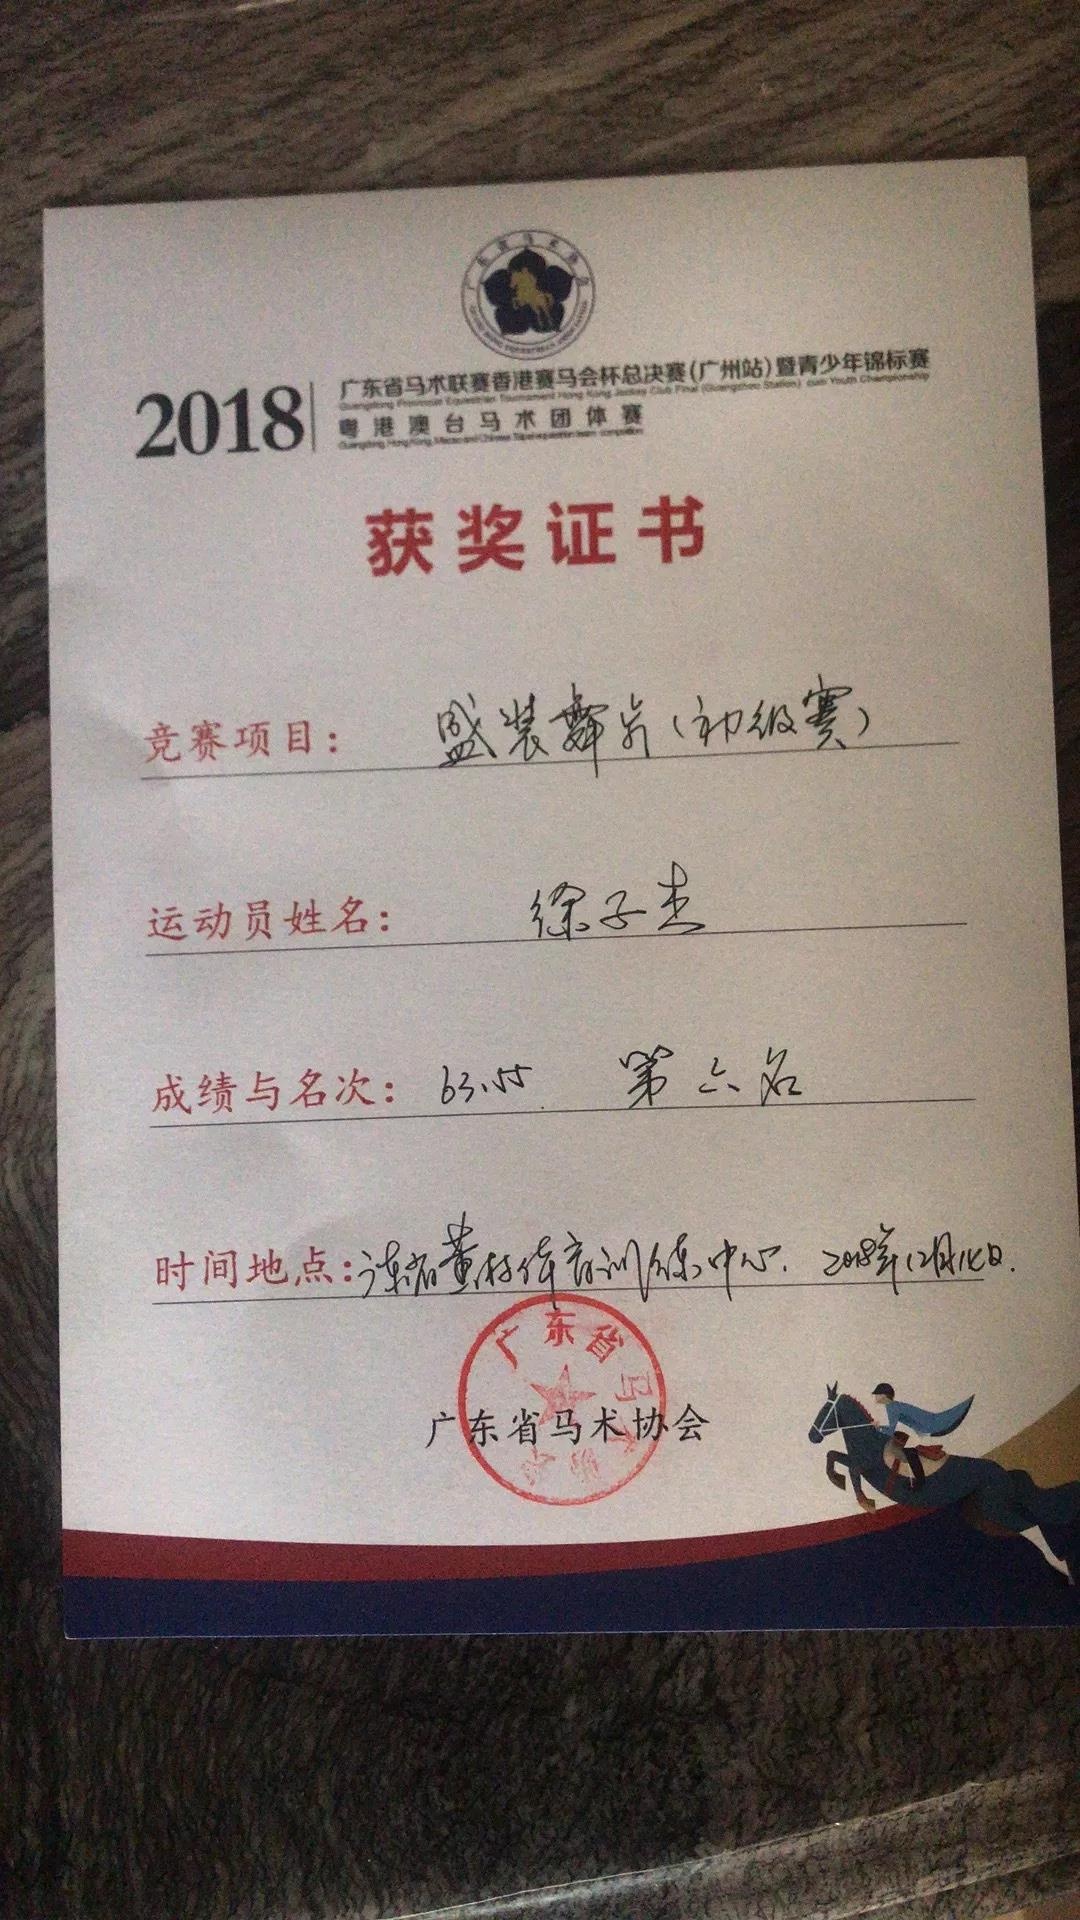 广东省马术协会
2018
广东省马术联赛香港赛马会杯总决赛(广州站)暨青少年锦标赛
Guangdong Provincial Equestrian Tournament Hong Kong Jockey Club Final (Guangzhou Station) cum Youth Championship
粤港澳台马术团体赛
获奖证书
竞赛项目: 盛装舞步(初级赛)
运动员姓名: 徐子杰
成绩与名次: 63.55 第六名
时间地点: 黄村体育训练中心. 2018年12月 日.
广东省马术协会
广东省马术协会